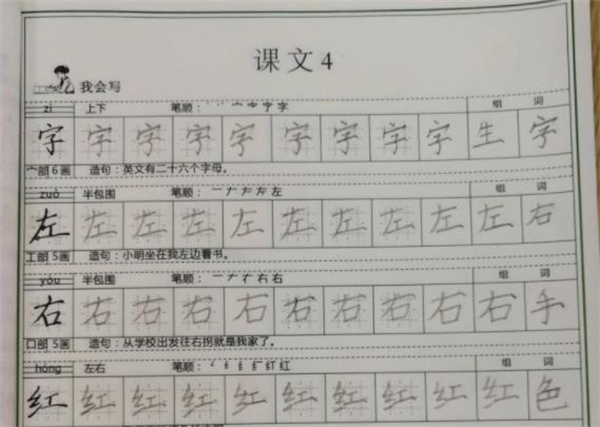 课文4
我会写
zì 上下 笔顺: 字 组 词
字 字 字 字 字 字 字 字 字 生 字
宀部6画 造句:英文有二十六个字母。
zuǒ 半包围 笔顺: 一 ナ 左 左 左 组 词
左 左 左 左 左 左 左 左 左 左 右
工部5画 造句:小明坐在我左边看书。
yòu 半包围 笔顺: 一 ナ 右 右 组 词
右 右 右 右 右 右 右 右 右 右 手
口部5画 造句:从学校出发往右拐就是我家了。
hóng 左右 笔顺: 红 红 组 词
红 红 红 红 红 红 红 红 红 红 色